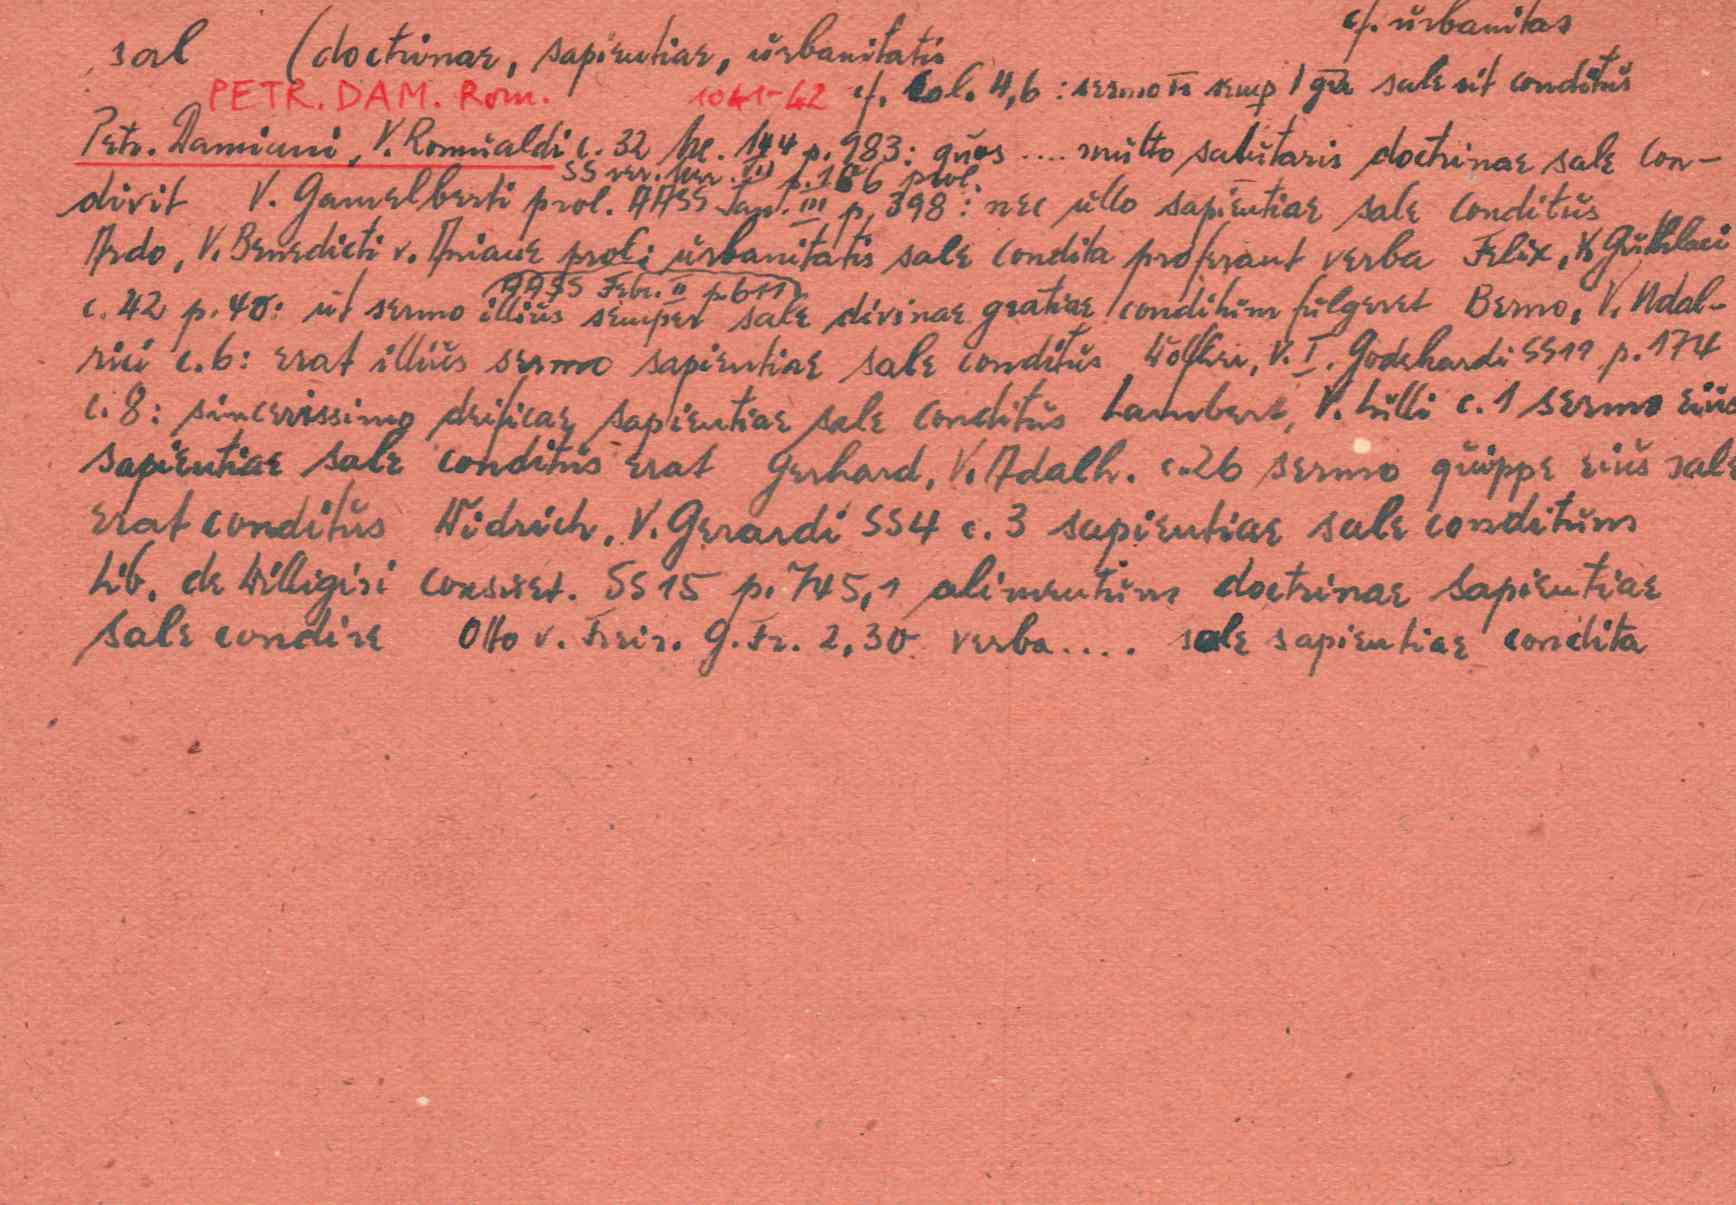 cf. urbanitas
sal (doctrinae, sapientiae, urbanitatis
PETR. DAM. Rom. 1041-42 cf. Col. 4,6: sermo semp sale sit conditus
Petr. Damiani, V. Romualdi c. 32 144 p. 983: quos .... multo salutaris doctrinae sale con-
SS rer. mer. p. 186 prol.
divit V. Gamelberti prol. AASS Jan. III p. 398: nec ullo sapientiae sale conditus
Ardo, V. Benedicti v. Aniane prol: urbanitatis sale condita proferant verba Felix, V. Guthlaci
AASS Febr. II p. 611
c. 42 p. 48: ut sermo illius semper sale divinae gratiae conditum fulgeret Berno, V. Udal-
rici c. 6: erat illius sermo sapientiae sale conditus Wolfher, V. I. Godehardi SS 11 p. 174
c. 8: sincerissimo deificae sapientiae sale conditus Lambert, V. Lulli c. 1 sermo eius
sapientiae sale conditus erat Gerhard, V. Adalh. c. 26 sermo quippe eius sale
erat conditus Widrich, V. Gerardi SS 4 c. 3 sapientiae sale conditum
Lib. de Willigisi consuet. SS 15 p. 745,1 alimentum doctrinae sapientiae
sale condire Otto v. Freis. G. Fr. 2,30 verba .... sale sapientiae condita